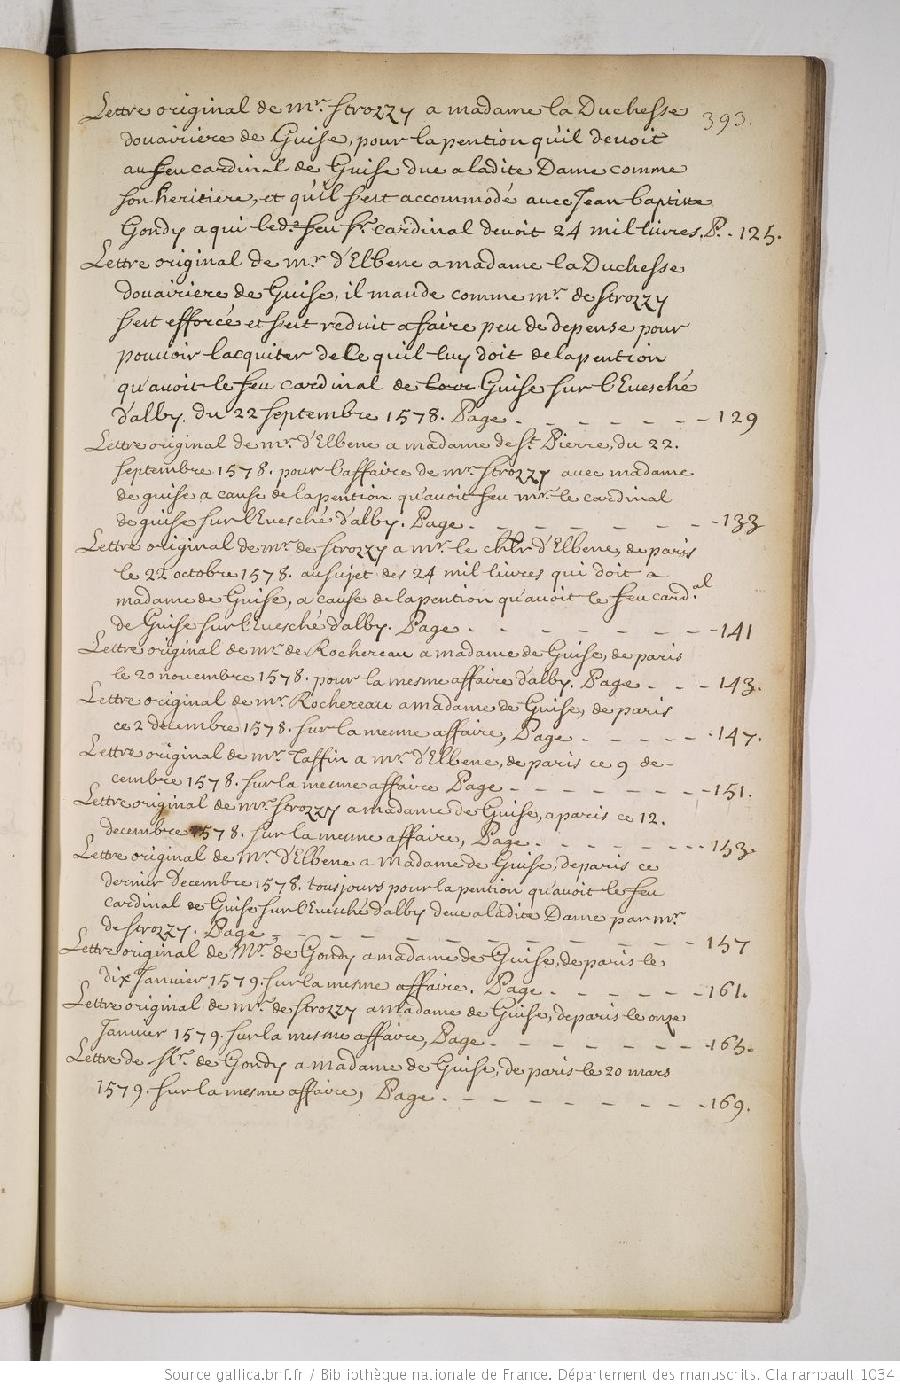 393.
Lettre original de mr. strozzy a madame la Duchesse
douairiere de Guise, pour la pention qu'il devoit
au feu cardinal de Guise due a ladite Dame comme
son heritiere, et qu'il s'est accommodé avec Jean baptiste
Gondy a qui led. feu sr. cardinal devoit 24 mil livres. P. - 125.
Lettre original de mr. d'Elbene a madame la Duchesse
douairiere de Guise, il mande comme mr. de strozzy
s'est efforcé et s'est reduit a faire peu de depense pour
pouvoir s'acquiter de ce quil luy doit de la pention
qu'avoit le feu cardinal de Guise sur l'Evesché
d'alby. du 22 septembre 1578. Page - - - - - - 129
Lettre original de mr. d'Elbene a madame de st. Pierre, du 22.
septembre 1578. pour l'affaire de mr. strozzy avec madame
de guise a cause de la pention qu'avoit feu mr. le cardinal
de guise sur l'Evesché d'alby. Page - - - - - - - 133
Lettre original de mr. de strozzy a mr. le chlr d'Elbene, de paris
le 22 octobre 1578. au sujet des 24 mil livres qui doit a
madame de Guise, a cause de la pention qu'avoit le feu card.al
de Guise sur l'Evesché d'alby. Page - - - - - - - 141
Lettre original de mr. de Rochereau a madame de Guise, de paris
le 20 novembre 1578. pour la mesme affaire d'alby. Page - - - 143.
Lettre original de mr. Rochereau a madame de Guise, de paris
ce 2 decembre 1578. sur la mesme affaire, Page - - - - - 147.
Lettre original de mr. Taffin a mr. d'Elbene, de paris ce 9 de-
cembre 1578. sur la mesme affaire Page - - - - - - - 151.
Lettre original de mr. strozzy a madame de Guise, a paris ce 12.
decembre 1578. sur la mesme affaire, Page - - - - - - 153
Lettre original de mr. d'Elbene a madame de Guise, de paris ce
dernier decembre 1578. tousjours pour la pention qu'avoit le feu
cardinal de Guise sur l'Evesché d'alby deue a ladite Dame par mr.
de strozzy. Page - - - - - - - - - - - 157
Lettre original de mr. de Gondy a madame de Guise, de paris le
dix Janvier 1579. sur la mesme affaire. Page - - - - - 161.
Lettre original de mr. de strozzy a madame de Guise, de paris le onze
Janvier 1579. sur la mesme affaire, Page - - - - - - 165.
Lettre de sr. de Gondy a madame de Guise, de paris le 20 mars
1579. sur la mesme affaire, Page - - - - - - - - 169.
Source gallica.bnf.fr / Bibliothèque nationale de France. Département des manuscrits. Clairambault 1034